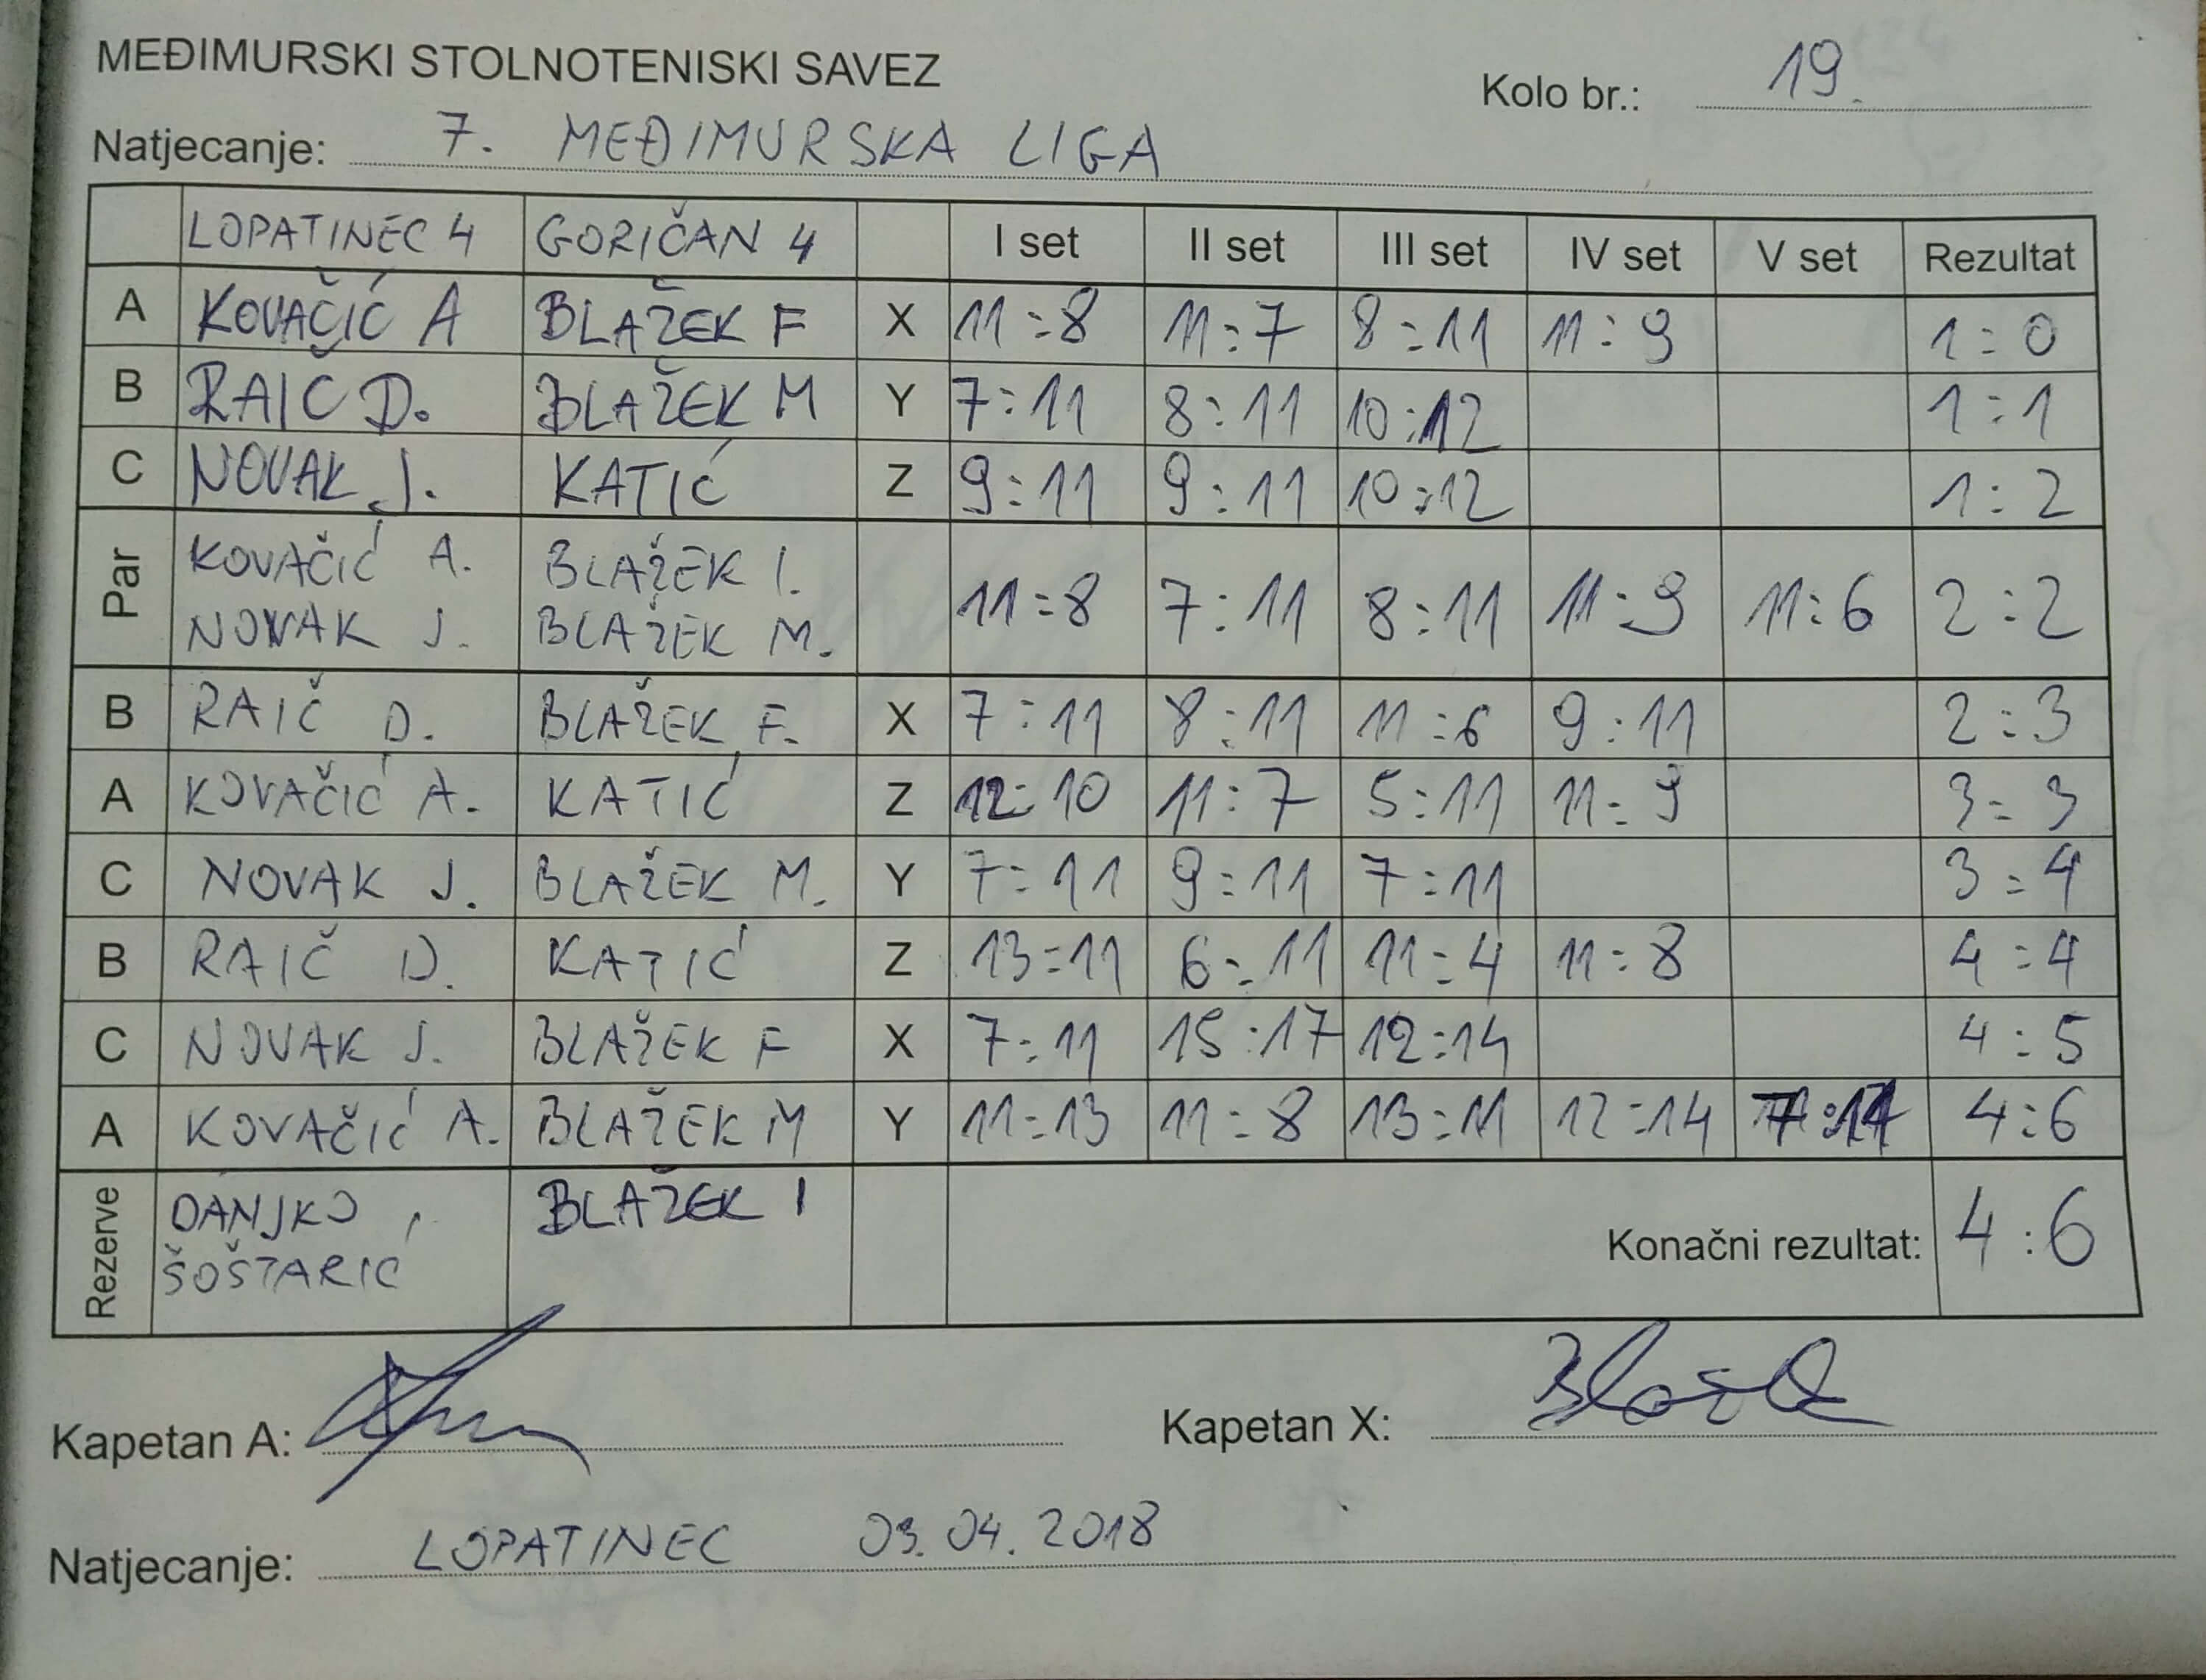 MEĐIMURSKI STOLNOTENISKI SAVEZ
Kolo br.: 19.
Natjecanje: 7. MEĐIMURSKA LIGA
LOPATINEC 4 GORIČAN 4 I set II set III set IV set V set Rezultat
A KOVAČIĆ A BLAŽEK F X 11:8 11:7 8:11 11:9 1:0
B RAIČ D. BLAŽEK M Y 7:11 8:11 10:12 1:1
C NOVAK J. KATIĆ Z 9:11 9:11 10:12 1:2
Par KOVAČIĆ A. BLAŽEK I. 11:8 7:11 8:11 11:9 11:6 2:2
NOVAK J. BLAŽEK M.
B RAIČ D. BLAŽEK F. X 7:11 8:11 11:6 9:11 2:3
A KOVAČIĆ A. KATIĆ Z 12:10 11:7 5:11 11:9 3:3
C NOVAK J. BLAŽEK M. Y 7:11 9:11 7:11 3:4
B RAIČ D. KATIĆ Z 13:11 6:11 11:4 11:8 4:4
C NOVAK J. BLAŽEK F X 7:11 15:17 12:14 4:5
A KOVAČIĆ A. BLAŽEK M Y 11:13 11:8 13:11 12:14 4:6
Rezerve DANJKO, BLAŽEK I
ŠOŠTARIĆ
Konačni rezultat: 4:6
Kapetan A: Kapetan X:
Natjecanje: LOPATINEC 09.04.2018